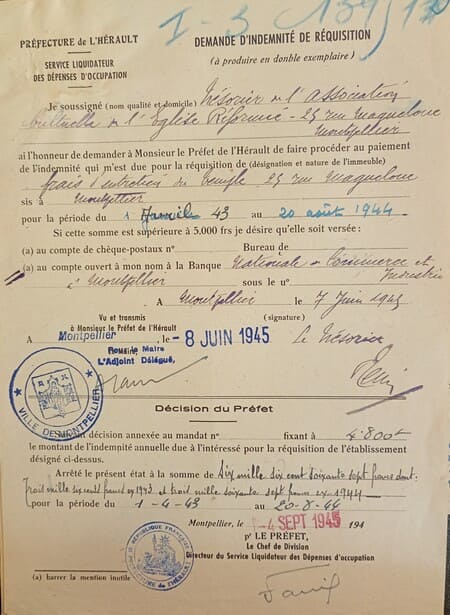 I-3 139/17
PRÉFECTURE de L'HÉRAULT
SERVICE LIQUIDATEUR
DES DÉPENSES D'OCCUPATION
DEMANDE D'INDEMNITÉ DE RÉQUISITION
(à produire en donble exemplaire)
Je soussigné (nom qualité et domicile) Trésorier de l'Association
cultuelle de l'Eglise Réformée - 25 rue Maguelone
Montpellier
ai l'honneur de demander à Monsieur le Préfet de l'Hérault de faire procéder au paiement
de l'indemnité qui m'est due pour la réquisition de (désignation et nature de l'immeuble)
frais d'entretien du temple 25 rue Maguelone
sis à Montpellier
pour la période du 1 43 au 20 août 1944
Si cette somme est supérieure à 5.000 frs je désire qu'elle soit versée :
(a) au compte de chèque-postaux n° Bureau de
(a) au compte ouvert à mon nom à la Banque Nationale de Commerce et
Industrie
à Montpellier sous le n°
A Montpellier le 7 Juin 1945
Vu et transmis
à Monsieur le Préfet de l'Hérault
(signature)
A Montpellier, le - 8 JUIN 1945
Le Trésorier
Pour le Maire
L'Adjoint Délégué,
VILLE DE MONTPELLIER
Décision du Préfet
décision annexée au mandat n° fixant à 4.800f
le montant de l'indemnité annuelle due à l'intéressé pour la réquisition de l'établissement
désigné ci-dessus.
Arrêté le présent état à la somme de Six mille six cent soixante sept francs dont
trois mille six cents francs ex 1943 et trois mille soixante sept francs ex 1944
pour la période du 1-4-43 au 20-8-44
Montpellier, le -4 SEPT 1945 194
pr LE PRÉFET,
Le Chef de Division
Directeur du Service Liquidateur des Dépenses d'occupation
RÉPUBLIQUE FRANÇAISE
PRÉFECTURE de l'HÉRAULT
(a) barrer la mention inutile